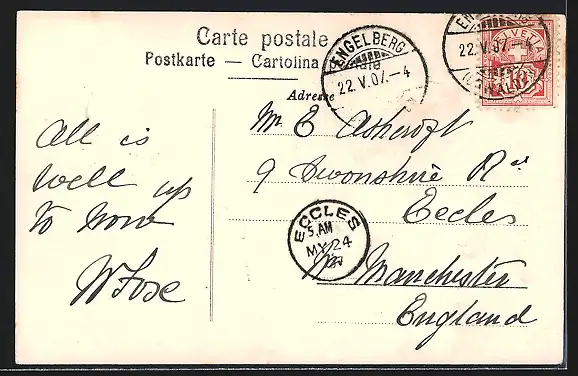 Carte postale
Postkarte — Cartolina postale
Adresse
ENGELBERG
22.V.07.–4
22.V.07.–4
HELVETIA
10
All is
well up
to now
Mr E Ashcroft
9 Devonshire Rd
Eccles
ECCLES
5 AM
MY 24
07
Nr Manchester
England